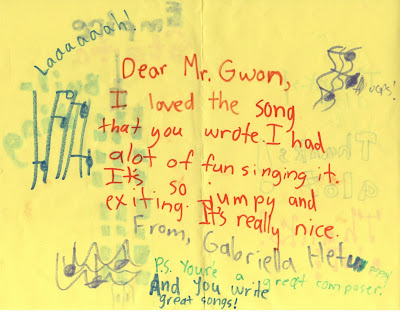 Laaaaaaah!
Dear Mr. Gwon,
I loved the song
that you wrote. I had
alot of fun singing it.
It's so jumpy and
exiting. It's really nice.
From, Gabriella
P.S. You're a great composer.
And you write
great songs!